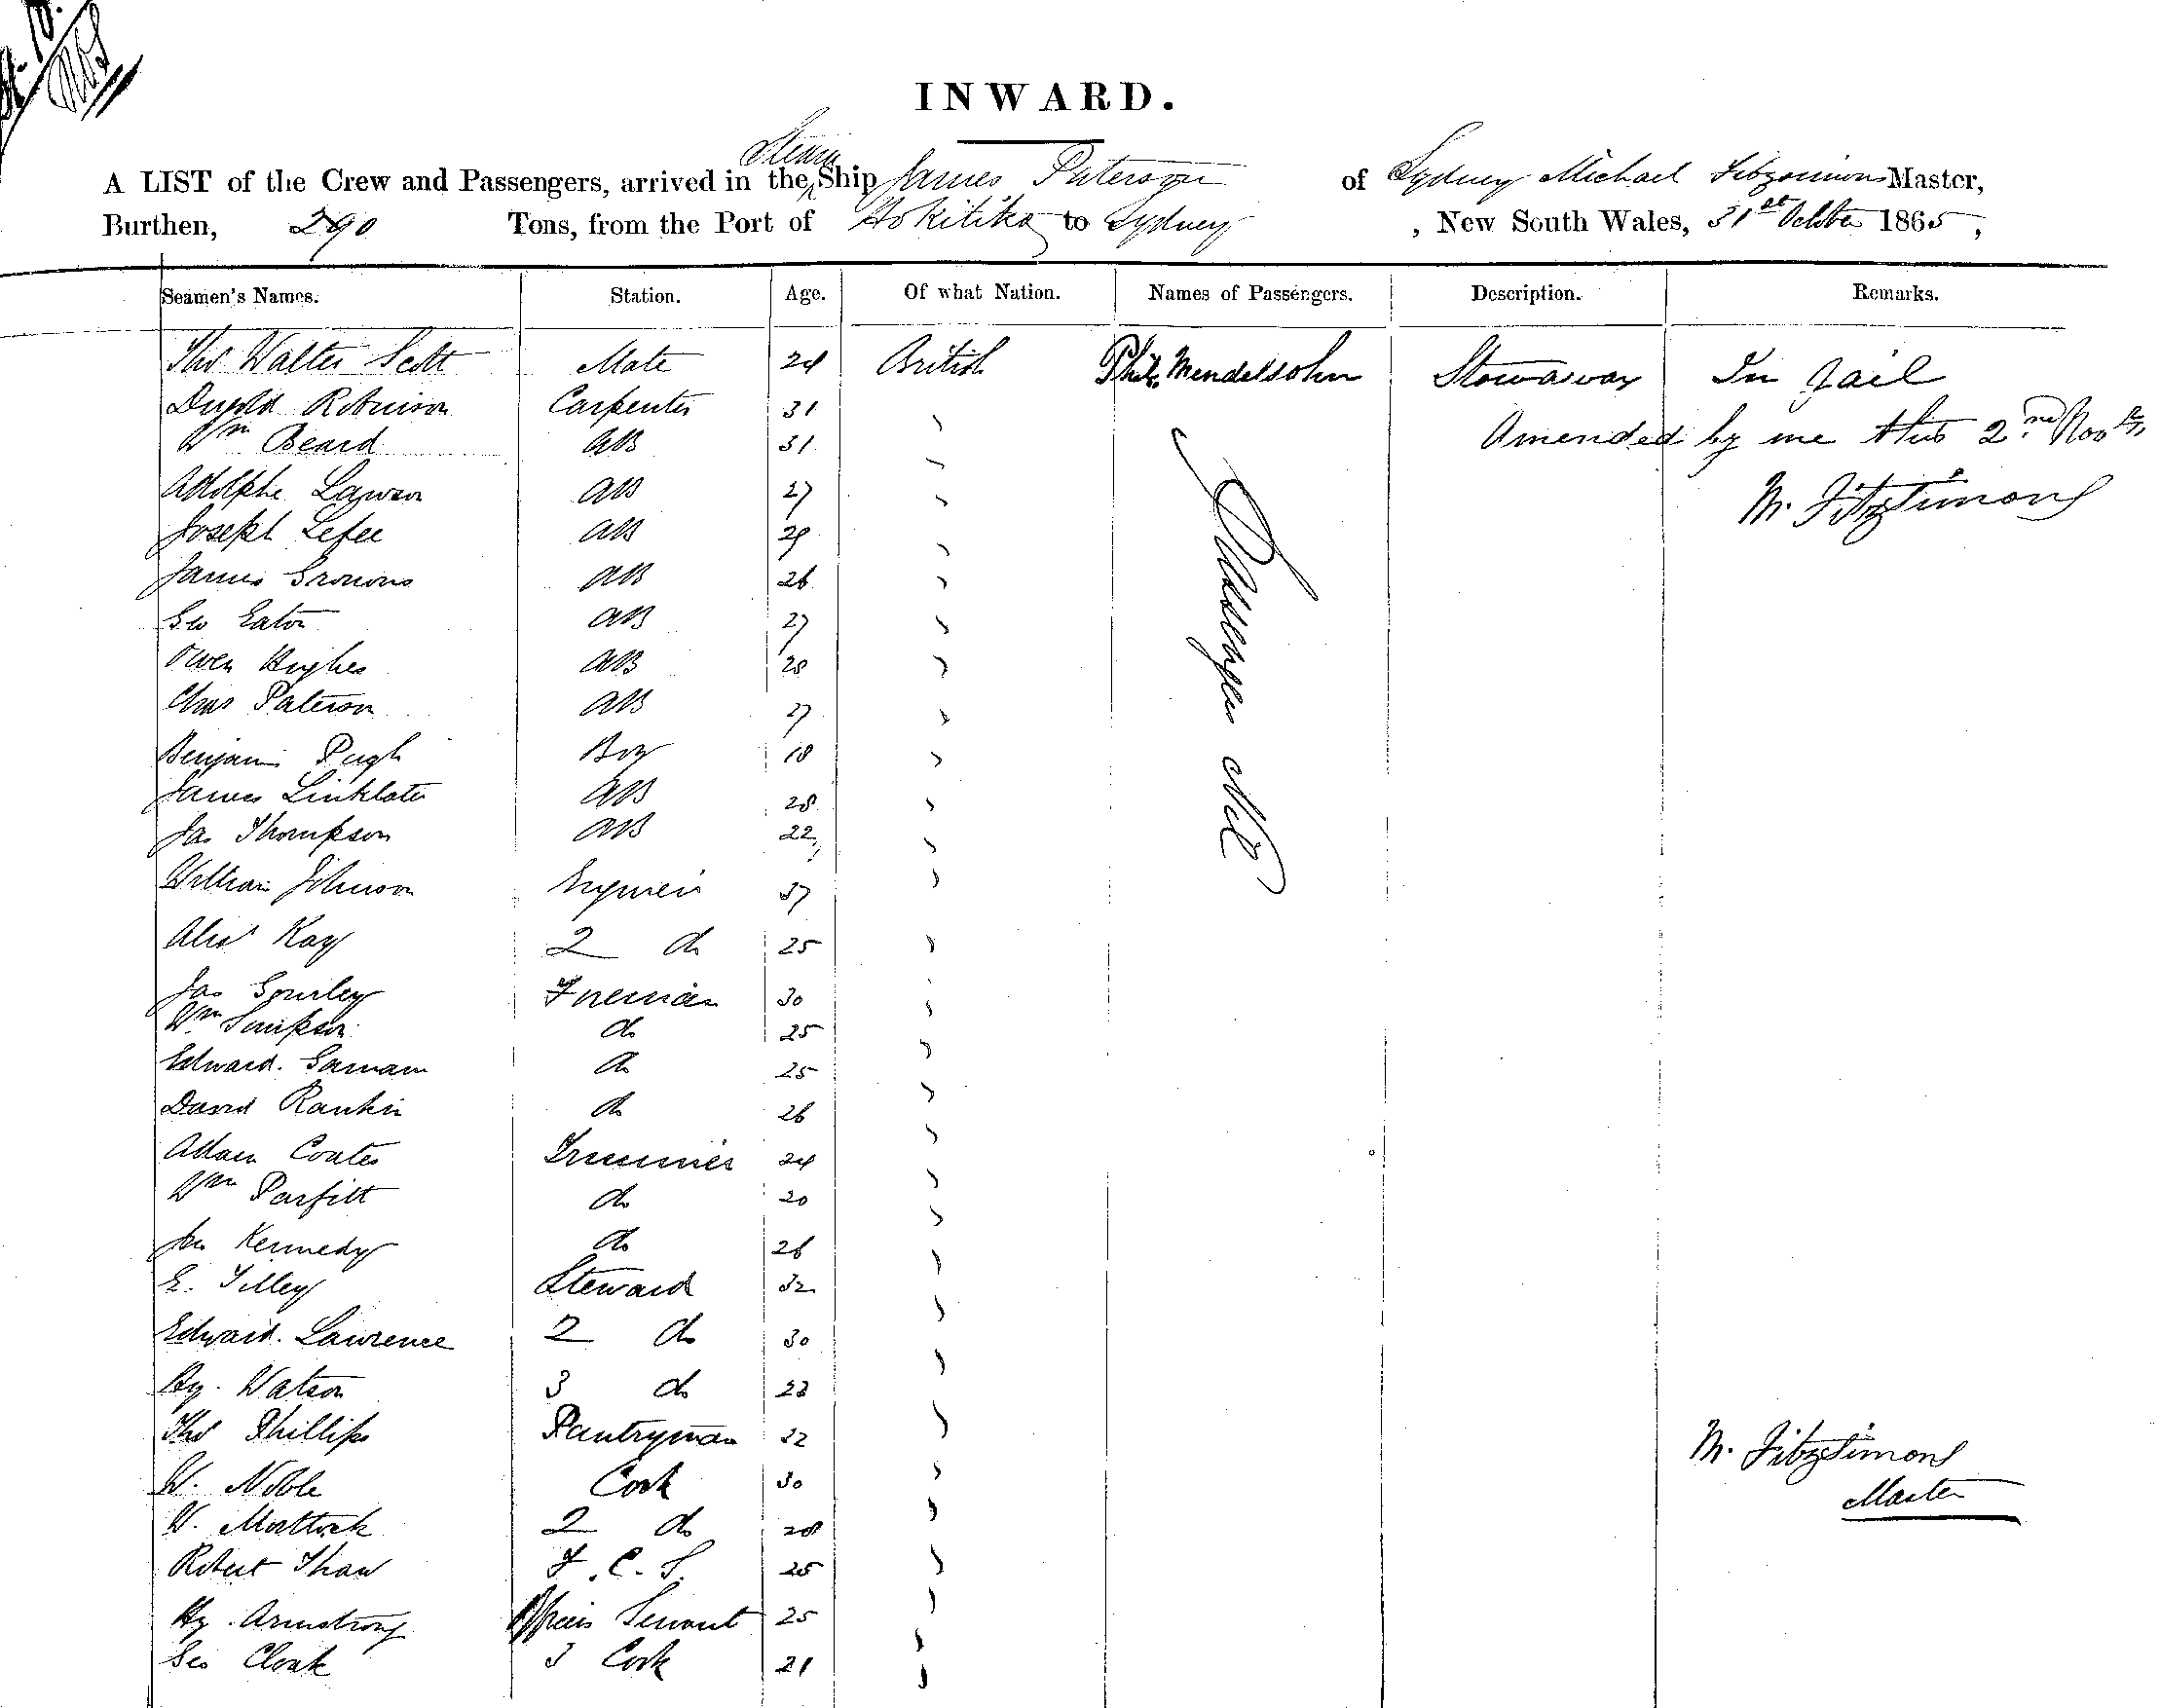 INWARD.
A LIST of the Crew and Passengers, arrived in the Steam Ship James Paterson of Sydney Michael Fitzsimons Master,
Burthen, 290 Tons, from the Port of Hokitika to Sydney, New South Wales, 31st October 1865,
Seamen's Names. Station. Age. Of what Nation. Names of Passengers. Description. Remarks.
Thos Walter Scott Mate 24 British Phil. Mendelsohn Stowaway In Jail
Robinson Carpenter 31 "
Wm Beard AB 31 " Amended by me this 2nd Nov
Adolphe Lawson AB 27 " M. Fitzsimons
Joseph Lefee AB 29 "
James AB 26 "
Geo Eaton AB 27 "
Owen Hughes AB 28 "
Chas Paterson AB 27 "
Benjamin Pugh Boy 18 "
James Linklater AB 28 "
Jas Thompson AB 22 "
Passengers Nil
William Johnson Engineer 37 "
Alexr Kay 2 do 25 "
Jas Gourley Fireman 30 "
Wm Simpson do 25 "
Edward do 25 "
David Rankin do 26 "
Adam Coates Trimmer 24 "
Wm Parfitt do 20 "
Jas Kennedy do 26 "
E. Tilley Steward 32 "
Edward. Lawrence 2 do 30 "
Hy. Watson 3 do 23 "
Thos Phillips Pantryman 22 " M. Fitzsimons
W. Noble Cook 30 " Master
W. Mattock 2 do 28 "
Robert Shaw F.C.S. 25 "
Hy. Armstrong Officers Servant 25 "
Geo Cloak 3 Cook 21 "